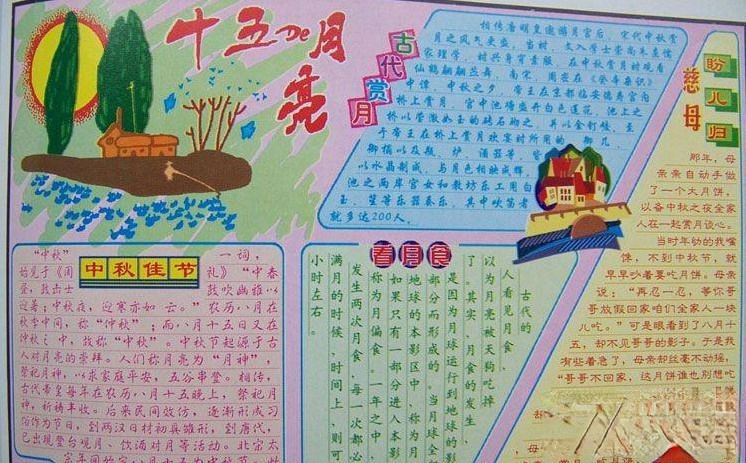 十五的月亮
古代赏月
相传唐明皇遨游月宫后,宋代中秋赏
月之风气更盛,当时,文人学士崇尚朱袁儒
仙魏翩翩兰舞。南宋,周密在《武林旧识》
中谭,中秋之夕,帝王在京都临安德寿宫伯
桥上赏月,宫中池塘盛开白色莲花,池上之
桥以莹澈如玉的砖石砌之,并以金钉铰,至
于帝王在桥上赏月欢宴时所用的
御榻以及瓶、炉、酒器等,
以水晶制成,与月色相映成辉,
池之两岸宫女和教坊乐工用白
玉、笙等乐器奏乐,其中吹笛者
就多达200人。
盼儿归
慈母
那年,母
亲亲自动手做
了一个大月饼,
以备中秋之夜全家
人在一起赏月谈心。
当时年幼的我嘴
馋,不到中秋节,就
早早吵着要吃月饼。母亲
说:“再忍一忍,等你哥
哥放假回家咱们全家人一块
儿吃。”可是眼看到了八月十
五,却不见哥哥的影子。于是我
有些着急了,母亲却丝毫不动摇,
“哥哥不回家,这月饼谁也别想吃
中秋佳节
“中秋”一词,
始见于《周礼》“中春
昼,鼓击士鼓吹幽雅以
迎暑;中秋夜,迎寒亦如云。”农历八月在
秋季中间,称“仲秋”;而八月十五日又在
仲秋之中,故称“中秋”。中秋节起源于古
人对月亮的崇拜。人们称月亮为“月神”,
祭祀月神,以求家庭平安,五谷丰登。相传,
古代帝皇每年在农历八月十五晚上,祭祀月
神,祈祷丰收。后来民间效仿,逐渐形成习
俗作为节日,到两汉日材初具雏形,到唐代,
已出现登台观月、饮酒对月等活动。北宋太
宗年间始定八月十五为中秋节
看月食
古代的
人看见月食,
以为月亮被天狗吃掉
了。其实,月食的发生,
是因为月球运行到地球的影
部分而形成的。当月球全
地球的本影区中,称为月
如果只有一部分进入本影
称为月偏食。一年之中,
发生两次月食,每一次都必
满月的时候,时间上,则可
小时左右。